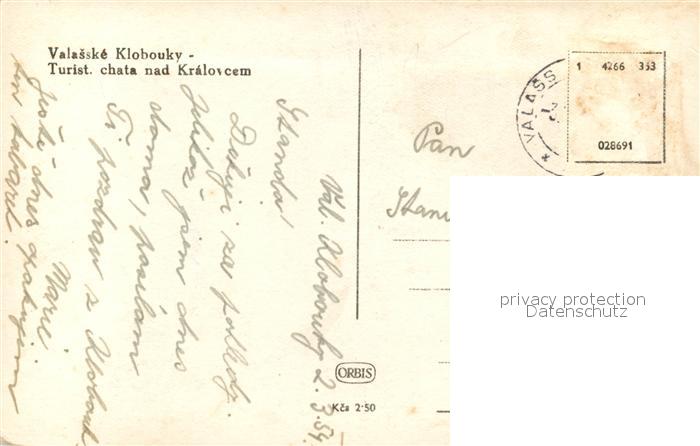 Valašské Klobouky -
Turist. chata nad Královcem
Val. Klobouky 2.3.54.
Standa!
Děkuji za pohled.
Jelikož jsem dnes
doma, posílám
Ti pozdrav z Klobouk.
Marie
Ještě dnes
Pan
VALAŠS
1 4266 353
028691
privacy protection
Datenschutz
ORBIS
Kčs 2·50